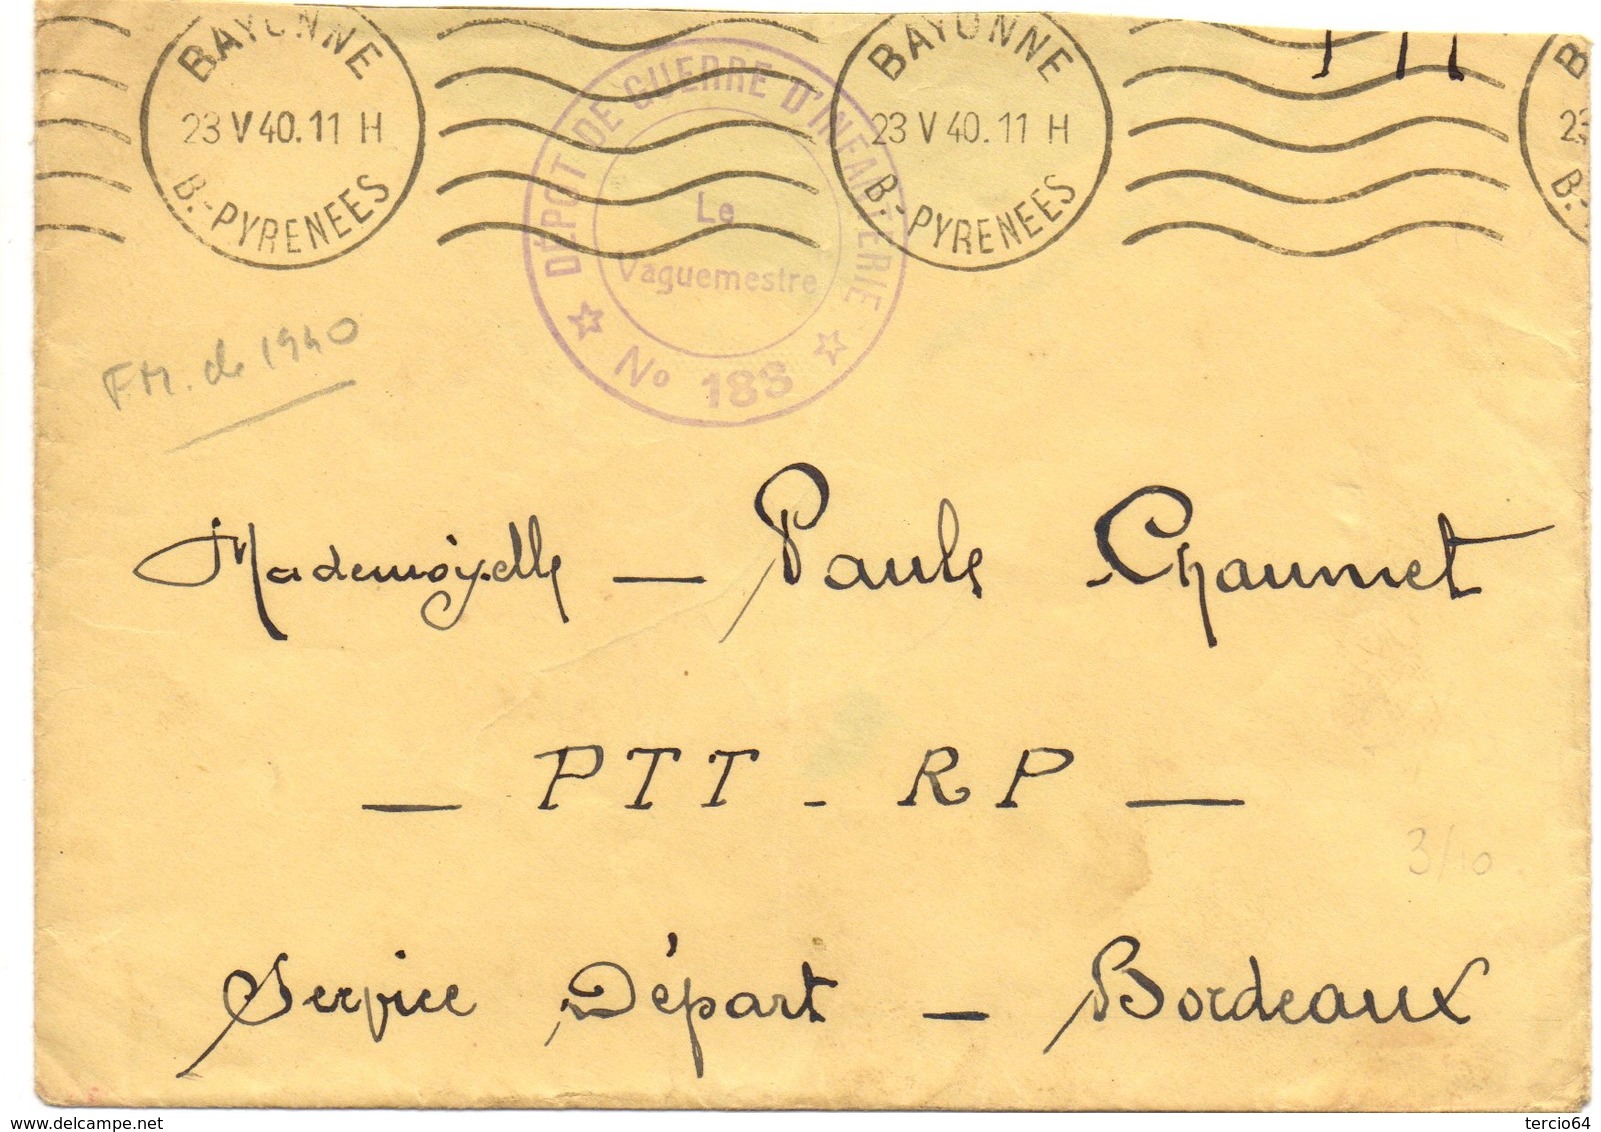 BAYONNE
23 V 40. 11 H
B.-PYRENEES
BAYONNE
23 V 40. 11 H
B.-PYRENEES
DÉPOT DE GUERRE D'INFANTERIE
Le
Vaguemestre
☆ No 183 ☆
F.M. de 1940
Mademoiselle — Paule Chaumet
— PTT - RP —
3/10
Service Départ — Bordeaux
delcampe.net
tercio64